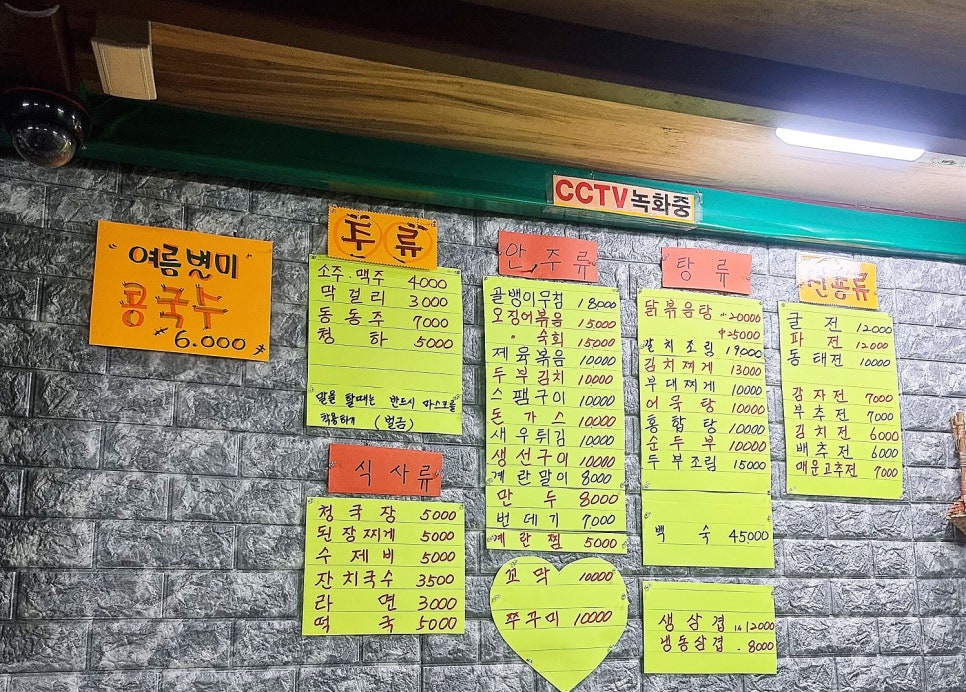 CCTV녹화중
여름별미
콩국수
6.000
주류
소주.맥주 4000
막걸리 3000
동동주 7000
청하 5000
말을 할때는 반드시 마스크를
착용하기 (벌금)
식사류
청국장 5000
된장찌게 5000
수제비 5000
잔치국수 3500
라면 3000
떡국 5000
안주류
골뱅이무침 18000
오징어볶음 15000
〃 숙회 15000
제육볶음 10000
두부김치 10000
스팸구이 10000
돈가스 10000
새우튀김 10000
생선구이 10000
계란말이 8000
만두 8000
번데기 7000
계란찜 5000
꼬막 10000
쭈꾸미 10000
탕류
닭볶음탕 20000
25000
갈치조림 19000
김치찌게 13000
부대찌게 10000
어묵탕 10000
홍합탕 10000
순두부 10000
두부조림 15000
백숙 45000
생삼겹 12000
냉동삼겹 8000
굴전 12000
파전 12000
동태전 10000
감자전 7000
부추전 7000
김치전 6000
배추전 6000
매운고추전 7000